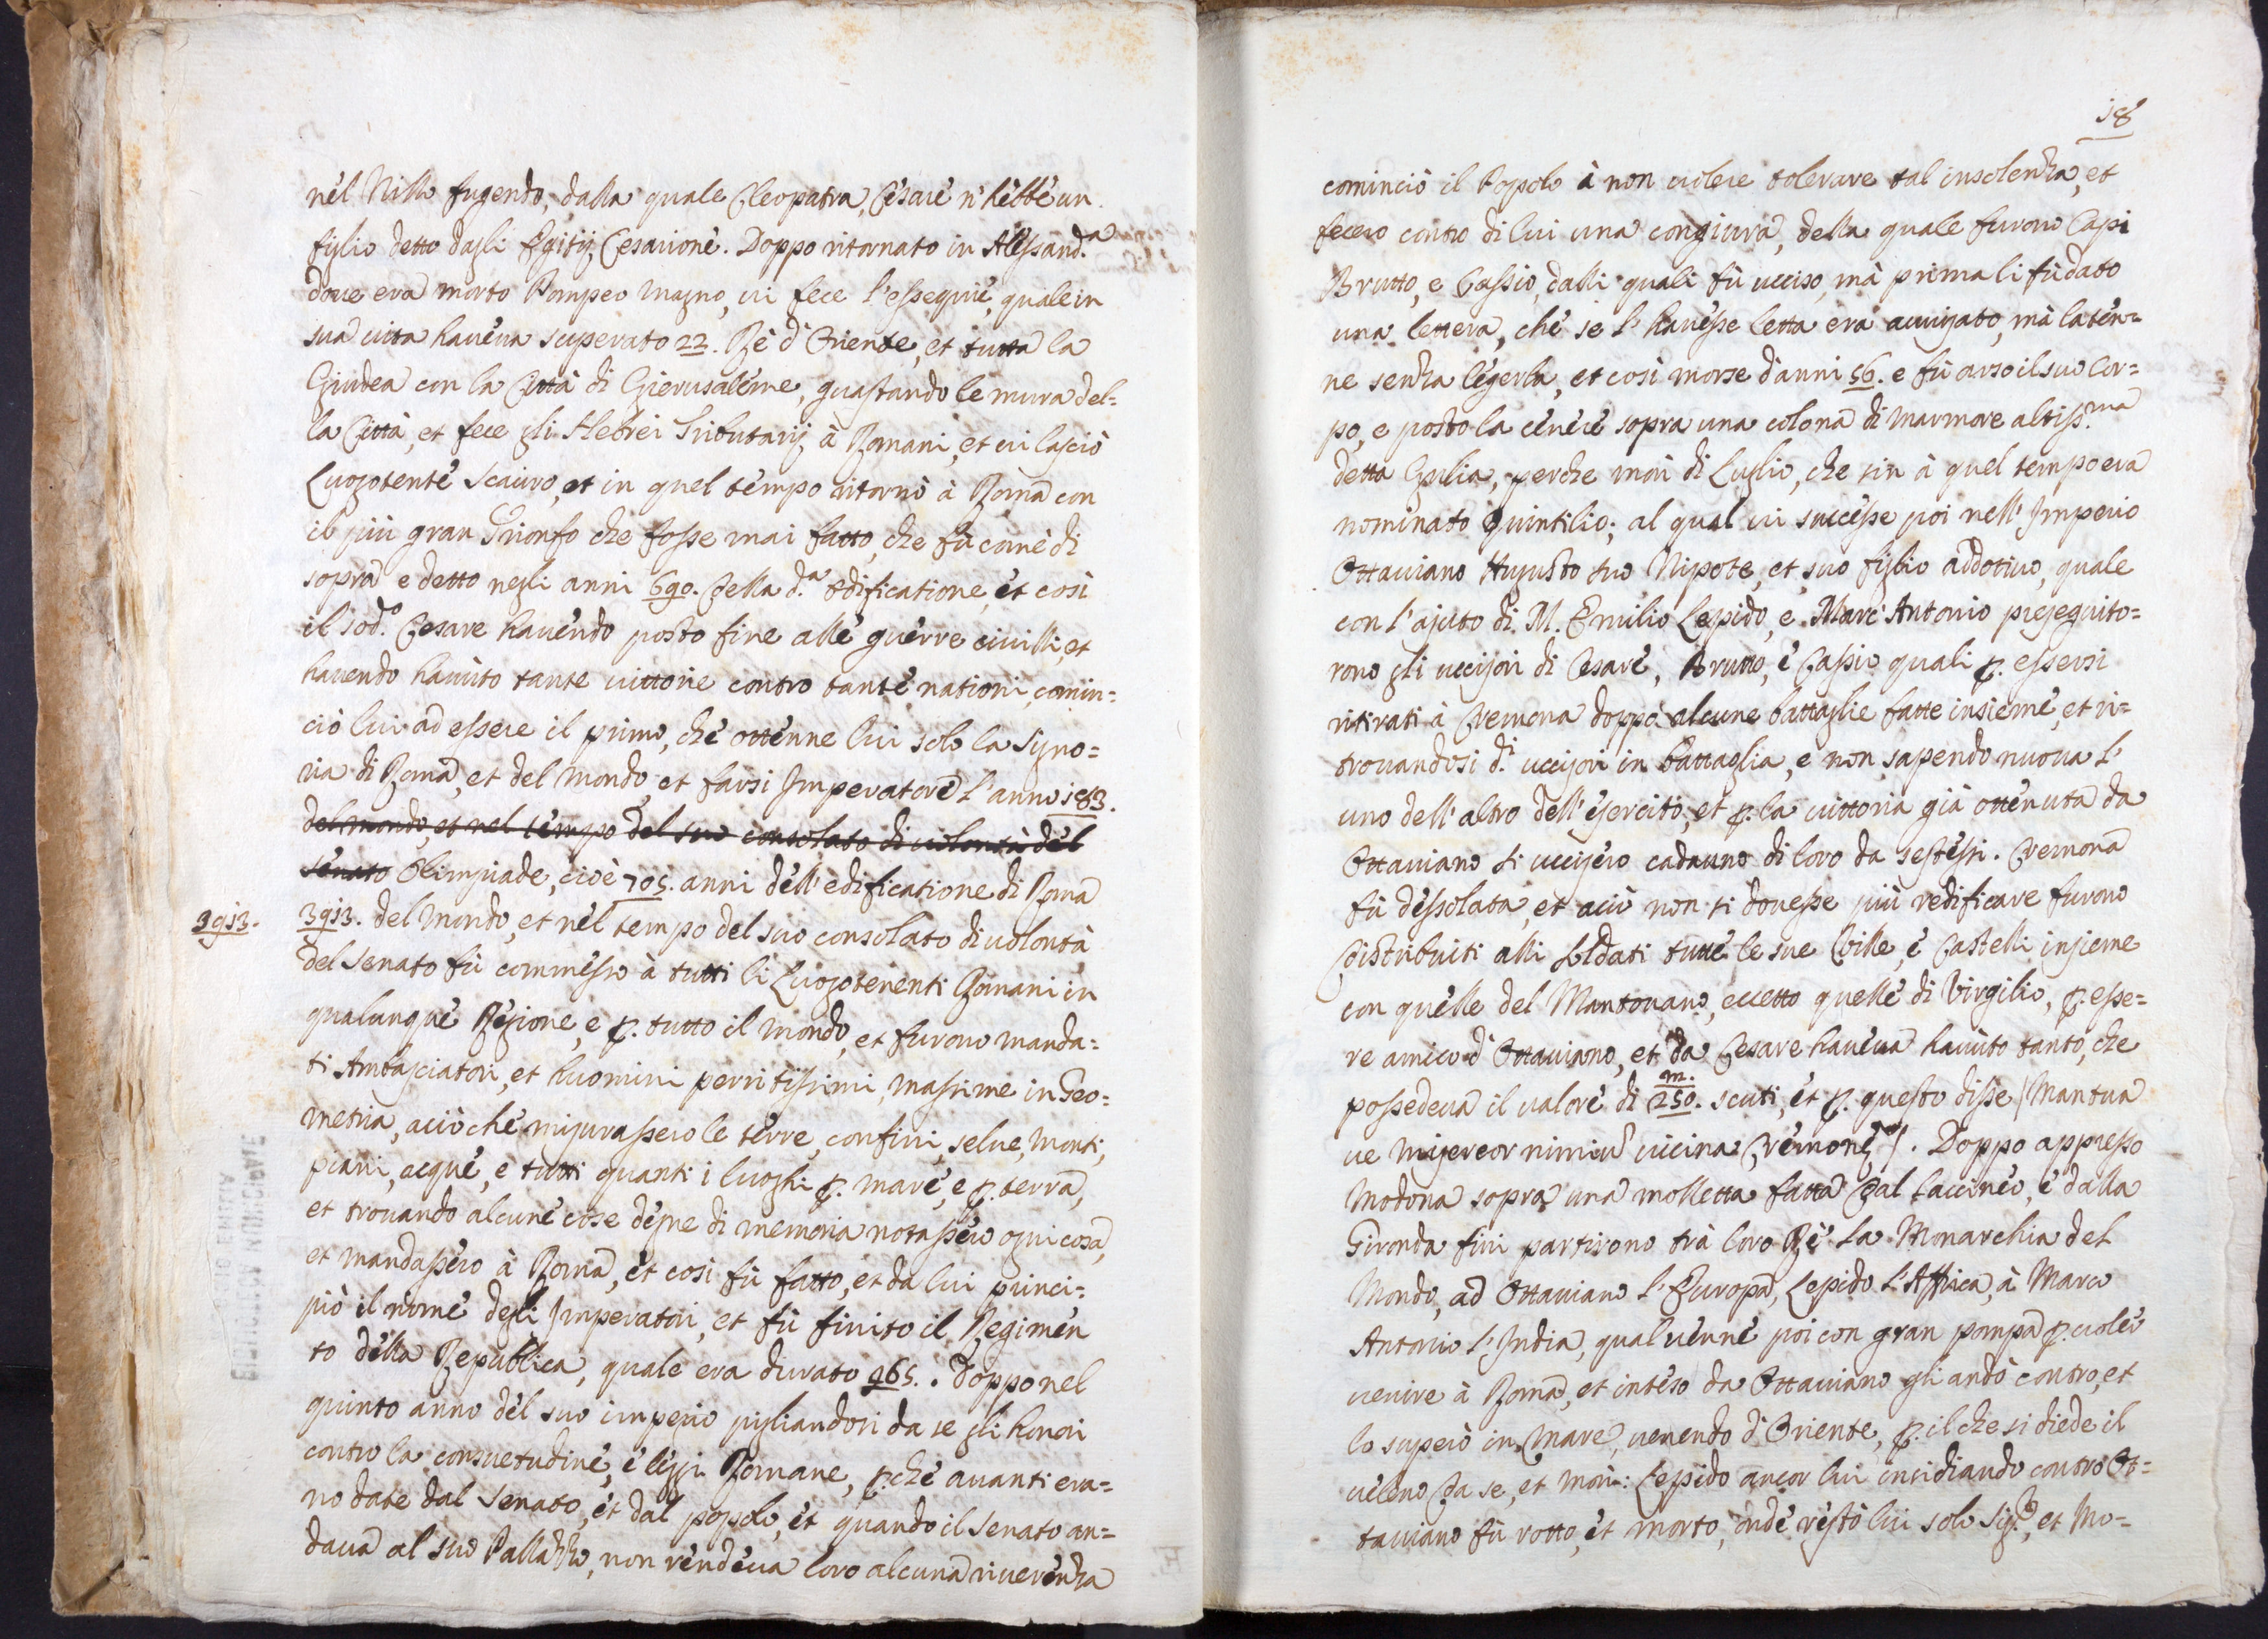 nel Nillo fugendo, dalla quale Cleopatra, Cesare n'hebbe un
figlio detto dagli Egitij Cesarione. Doppo ritornato in Alessand.a
doue era morto Pompeo Magno, ui fece l'essequie, quale in
sua uita haueua superato 22. Rè d'Oriente, et tutta la
Giudea con la Città di Gierusaleme, guastando le mura del=
la Città, et fece gli Hebrei Tributarij à Romani, et ui lasciò
Luogotente Scauro, et in quel tempo ritornò à Roma con
il più gran Trionfo che fosse mai fatto, che fù come di
sopra e detto negli anni 690. della d.a edificatione, et così
il sod.o Cesare hauendo posto fine alle guerre ciuilli, et
hauendo hauuto tante uittorie contro tante nationi, comin=
ciò lui ad essere il primo, che ottenne lui solo la signo=
ria di Roma, et del Mondo, et farsi Imperatore l'anno 183.
del mondo, et nel tempo del suo consolato di uolontà del
senato Olimpiade, cioè 705. anni dell'edificatione di Roma
3913.
3913. del Mondo, et nel tempo del suo consolato di uolontà
del Senato fù commesso à tutti li Luogotenenti Romani in
qualunque Regione, e p. tutto il mondo, et furono manda=
ti Ambasciatori, et huomini perritissimi, massime in Geo=
metria, acciò che misurassero le terre, confini, selue, Monti,
piani, acque, e tutti quanti i luoghi p. mare, e p. terra,
et trouando alcune cose degne di memoria notassero ogni cosa,
et mandassero à Roma, et così fù fatto, et da lui princi=
piò il nome degli Imperatori, et fù finito il Regimen
to della Republica, quale era durato 465. Doppo nel
quinto anno del suo imperio pigliandosi da se gli honori
contro la consuetudine, e leggi Romane, p.che auanti era=
no date dal Senato, et dal popolo, et quando il Senato an=
daua al suo Pallazzo, non rendeua loro alcuna riuerenza
18
cominciò il Popolo à non uolere tolerare tal insolenza, et
fecero contro di lui una congiura, della quale furono Capi
Brutto, e Cassio, dalli quali fù ucciso, mà prima li fù dato
una lettera, che se l'hauesse letta era auuisato, mà la ten=
ne senza legerla, et così morse d'anni 56. e fù arso il suo Cor=
po, e posto la cenere sopra una colona di Marmore altiss.ma
detta Giulia, perche morì di Luglio, che sin à quel tempo era
nominato Quintilio; al qual ui successe poi nell'Imperio
Ottauiano Augusto suo Nipote, et suo figlio addotiuo, quale
con l'ajuto di M. Emilio Lepido, e Marc'Antonio preseguito=
rono gli uccisori di Cesare, Brutto, e Cassio quali p. essersi
ritirati à Cremona doppo alcune battaglie fatte insieme, et ri=
trouandosi d.i uccisori in battaglia, e non sapendo nuoua l'
uno dell'altro dell'esercito, et p. la uittoria già ottenuta da
Ottauiano si uccisero cadauno di loro da sestessi. Cremona
fù dessolata, et acciò non si douesse più redificare furono
distribuiti alli soldati tutte le sue Ville, e Castelli insieme
con quelle del Mantouano, eccetto quelle di Virgilio, p. esse=
re amico d'Ottauiano, et da Cesare haueua hauuto tanto, che
possedeua il ualore di 250.m. scuti, et p. questo disse / Mantua
ue misereor nimiũ uicina Cremonę /. Doppo appresso
Modona sopra una molletta fatta dal Laccineo, e dalla
Gironda fini partirono trà loro Rè la Monarchia del
Mondo, ad Ottauiano l'Europa, Lepido l'Affrica, à Marco
Antonio l'India, qual uenne poi con gran pompa p. uoler
uenire à Roma, et inteso da Ottauiano gli andò contro, et
lo superò in Mare, uenendo d'Oriente, p. il che si diede il
ueleno da se, et morì: Lepido ancor lui insidiando contro Ot=
tauiano fù rotto, et morto, onde restò lui solo Sig.re, et Mo=